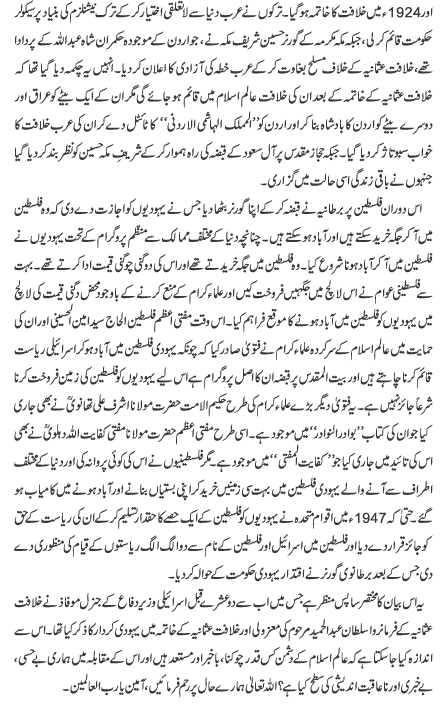 اور 1924ء میں خلافت کا خاتمہ ہوگیا۔ ترکوں نے عرب دنیا سے لاتعلقی اختیار کر کے ترک نیشنلزم کی بنیاد پر سیکولر
حکومت قائم کرلی، جبکہ مکہ مکرمہ کے گورنر حسین شریف مکہ نے، جو اردن کے موجودہ حکمران شاہ عبداللہ کے پردادا
تھے، خلافت عثمانیہ کے خلاف مسلح بغاوت کر کے عرب خطہ کی آزادی کا اعلان کر دیا۔ انہیں یہ چکمہ دیا گیا تھا کہ
خلافت عثمانیہ کے خاتمہ کے بعد ان کی خلافت عالم اسلام میں قائم ہو جائے گی مگر ان کے ایک بیٹے کو عراق اور
دوسرے بیٹے کو اردن کا بادشاہ بنا کر اور اردن کو ”المملکۃ الہاشمی الاردنی“ کا ٹائٹل دے کر ان کی عرب خلافت کا
خواب سبوتاژ کر دیا گیا۔ جبکہ حجاز مقدس پر آل سعود کے قبضہ کی راہ ہموار کر کے شریف مکہ حسین کو نظر بند کر دیا گیا
جنہوں نے باقی زندگی اسی حالت میں گزاری۔
اس دوران فلسطین پر برطانیہ نے قبضہ کر کے اپنا گورنر بٹھا دیا جس نے یہودیوں کو اجازت دے دی کہ وہ فلسطین
میں آ کر جگہ خرید سکتے ہیں اور آباد ہو سکتے ہیں۔ چنانچہ دنیا کے مختلف ممالک سے منظم پروگرام کے تحت یہودیوں نے
فلسطین میں آ کر آباد ہونا شروع کیا۔ وہ فلسطین میں جگہ خریدتے تھے اور اس کی دوگنی چوگنی قیمت ادا کرتے تھے۔ بہت
سے فلسطینی عوام نے اس لالچ میں جگہیں فروخت کیں اور علماء کرام کے منع کرنے کے باوجود محض دگنی قیمت کی لالچ
میں یہودیوں کو فلسطین میں آباد ہونے کا موقع فراہم کیا۔ اس وقت مفتی اعظم فلسطین الحاج سید امین الحسینیؒ اور ان کی
حمایت میں عالم اسلام کے سرکردہ علماء کرام نے فتویٰ صادر کیا کہ چونکہ یہودی فلسطین میں آباد ہو کر اسرائیلی ریاست
قائم کرنا چاہتے ہیں اور بیت المقدس پر قبضہ ان کا اصل پروگرام ہے اس لیے یہودیوں کو فلسطین کی زمین فروخت کرنا
شرعاً جائز نہیں ہے۔ یہ فتویٰ دیگر بڑے علماء کرام کی طرح حکیم الامت حضرت مولانا اشرف علی تھانویؒ نے بھی جاری
کیا جو ان کی کتاب ”بوادر النوادر“ میں موجود ہے۔ اسی طرح مفتی اعظم حضرت مولانا مفتی کفایت اللہ دہلویؒ نے بھی
اس کی تائید میں جاری کیا جو ”کفایت المفتی“ میں موجود ہے۔ مگر فلسطینیوں نے اس کی کوئی پروا نہ کی اور دنیا کے مختلف
اطراف سے آنے والے یہودی فلسطین میں بہت سی زمینیں خرید کر اپنی بستیاں بنانے اور آباد ہونے میں کامیاب ہو
گئے۔ حتیٰ کہ 1947ء میں اقوام متحدہ نے یہودیوں کو فلسطین کے ایک حصے کا حقدار تسلیم کر کے ان کی ریاست کے حق
کو جائز قرار دے دیا اور فلسطین میں اسرائیل اور فلسطین کے نام سے دو الگ الگ ریاستوں کے قیام کی منظوری دے دی
جس کے بعد برطانوی گورنر نے اقتدار یہودی حکومت کے حوالہ کر دیا۔
یہ اس بیان کا مختصر سا پس منظر ہے جس میں اب سے دو عشرے قبل اسرائیلی وزیر دفاع کے جنرل موفاذ نے خلافت
عثمانیہ کے فرمانروا سلطان عبدالحمید مرحوم کی معزولی اور خلافت عثمانیہ کے خاتمہ میں یہودی کردار کا ذکر کیا تھا۔ اس سے
اندازہ کیا جا سکتا ہے کہ عالم اسلام کے دشمن کس قدر چوکنا، باخبر اور مستعد ہیں اور اس کے مقابلہ میں ہماری بے حسی،
بے خبری اور ناعاقبت اندیشی کی سطح کیا ہے؟ اللہ تعالیٰ ہمارے حال پر رحم فرمائیں، آمین یا رب العالمین۔